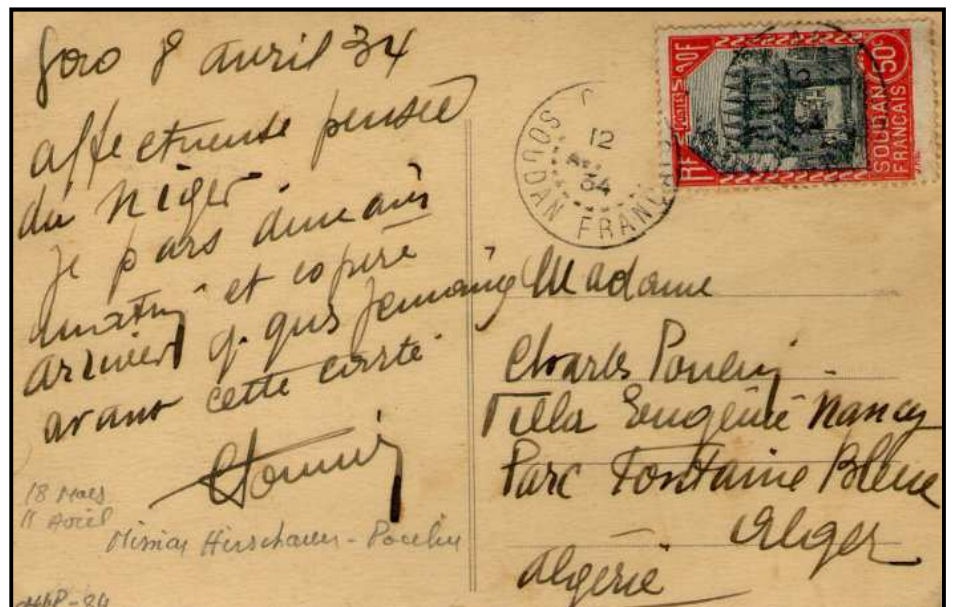 Goro 8 avril 34
affectueuse pensée
du Niger.
Je pars demain
matin et espère
arriver q.ques semaines
avant cette carte.
18 Mars
11 Avril
Mission Hirschauer - Poulin
12
AV
34
SOUDAN FRANÇ
RF
POSTES
50c
SOUDAN
FRANÇAIS
Madame
Charles Poulin
Villa Eugénie Nancy
Parc Fontaine Bleue
Alger
Algérie